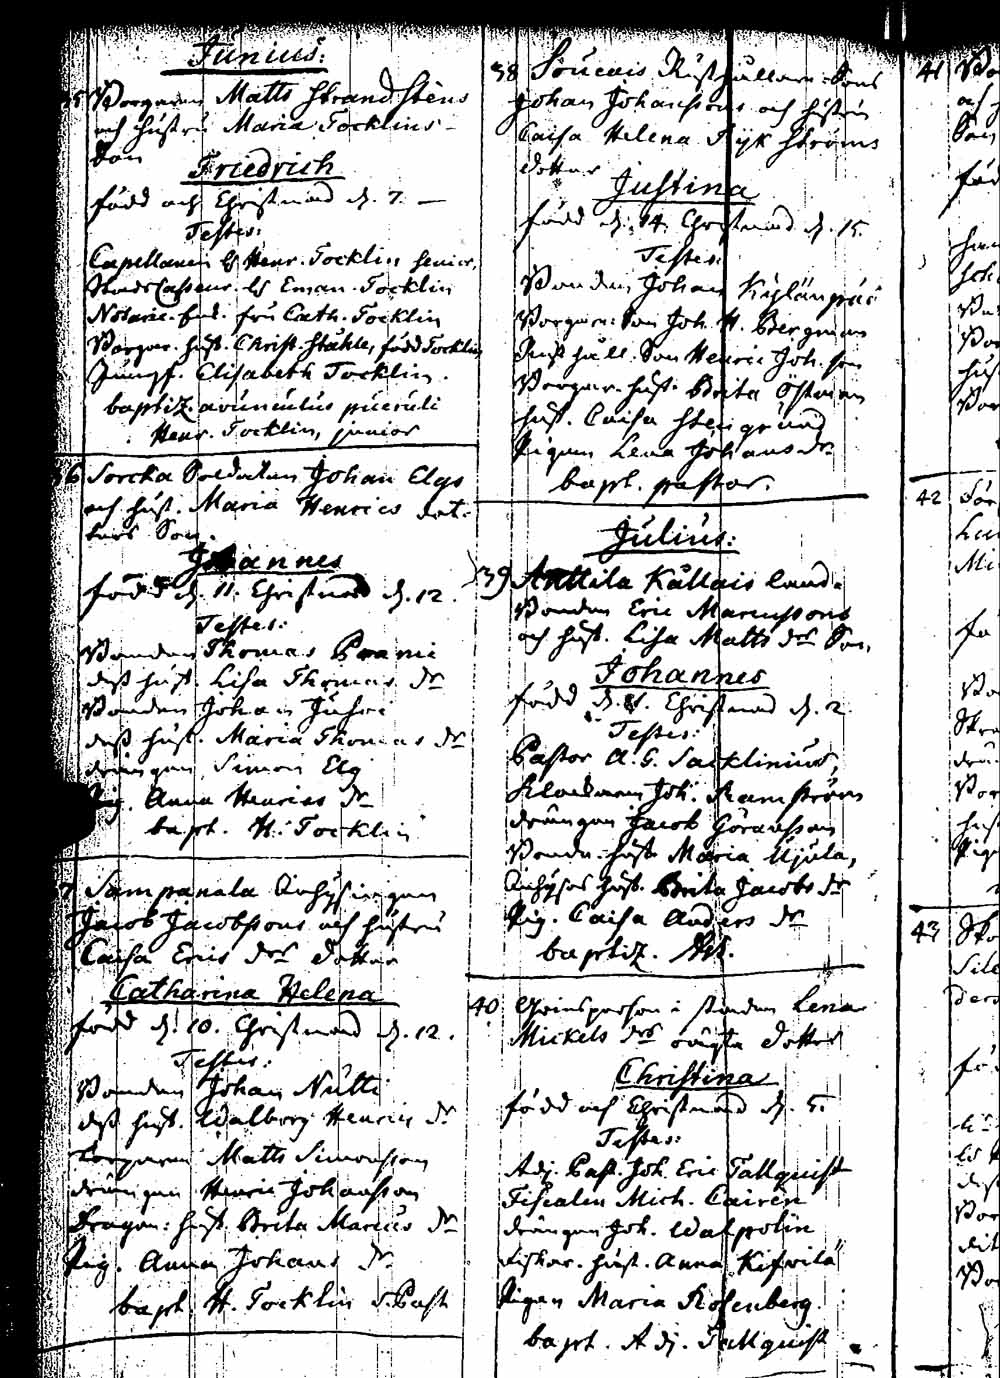 Junius:
35 Borgaren Matts Strandsténs
och hustru Maria Tocklins
Son
Friedrich
född och Christnad d. 7.
Testes:
Capellanen H Henr. Tocklin senior,
H Eman. Tocklin
Notarie fru Cath. Tocklin
Borgar. hust. Christ. Ståhle, född Tocklin
Jungf. Elisabeth Tocklin.
baptiz. avunculus pueruli
Henr. Tocklin, junior
36 Torcka Soldaten Johan Elgs
och hust. Maria Henrics dot-
ters Son.
Johannes
född d. 11. Christnad d. 12.
Testes:
Bonden Thomas
dess hust. Lisa Thomas dr
Bonden Johan Juhoi
dess hust. Maria Thomas dr
drängen Simon Elg
Pig. Anna Henrics dr
bapt. H. Tocklin
37 Sampanala Inhysingen
Jacob Jacobssons och hustru
Caisa Erics drs dotter
Catharina Helena
född d. 10. Christnad d. 12.
Testes:
Bonden Johan Nutti
dess hust. Walborg Henrics dr
Torparen Matts Simonsson
drängen Henric Johansson
Dragon: hust. Brita Marcus dr
Pig. Anna Johans dr
bapt H. Tocklin v. Past
38 Soucais Rusthållare Sons
Johan Johanssons och hustru
Caisa Helena Rykströms
dotter
Justina
född d. 14. Christnad d. 15.
Testes:
Bonden Johan
Borgare: Son Joh. H. Bergman
Rusthåll. Son Henric Joh. son
Borgar. hust. Brita Östman
hust. Caisa Stengrund
Pigan Lena Johans dr
bapt. pastor.
Julius:
39 Anttila Kållais land-
Bonden Eric Marcussons
och hust. Lisa Matts drs Son,
Johannes
född d. 1. Christnad d. 2.
Testes:
Pastor A. G. Sacklinius,
Klockaren Joh. Ramström
drängen Jacob Göransson
Bonde: hust. Maria Ujula,
Inhyses hust. Brita Jacobs dr
Pig. Caisa Anders dr
baptiz.
40 Qvinsperson i staden Lena
Mickels drs oägta dotter
Christina
född och Christnad d. 5.
Testes:
Adj. Past. Joh. Eric Tallquist
Fiscalen Mich. Cairén
drängen Joh. Walpolin
Fiskar. hust. Anna Kifwilä
Pigan Maria Rosenberg.
bapt. Adj. Tallquist
41
42
43